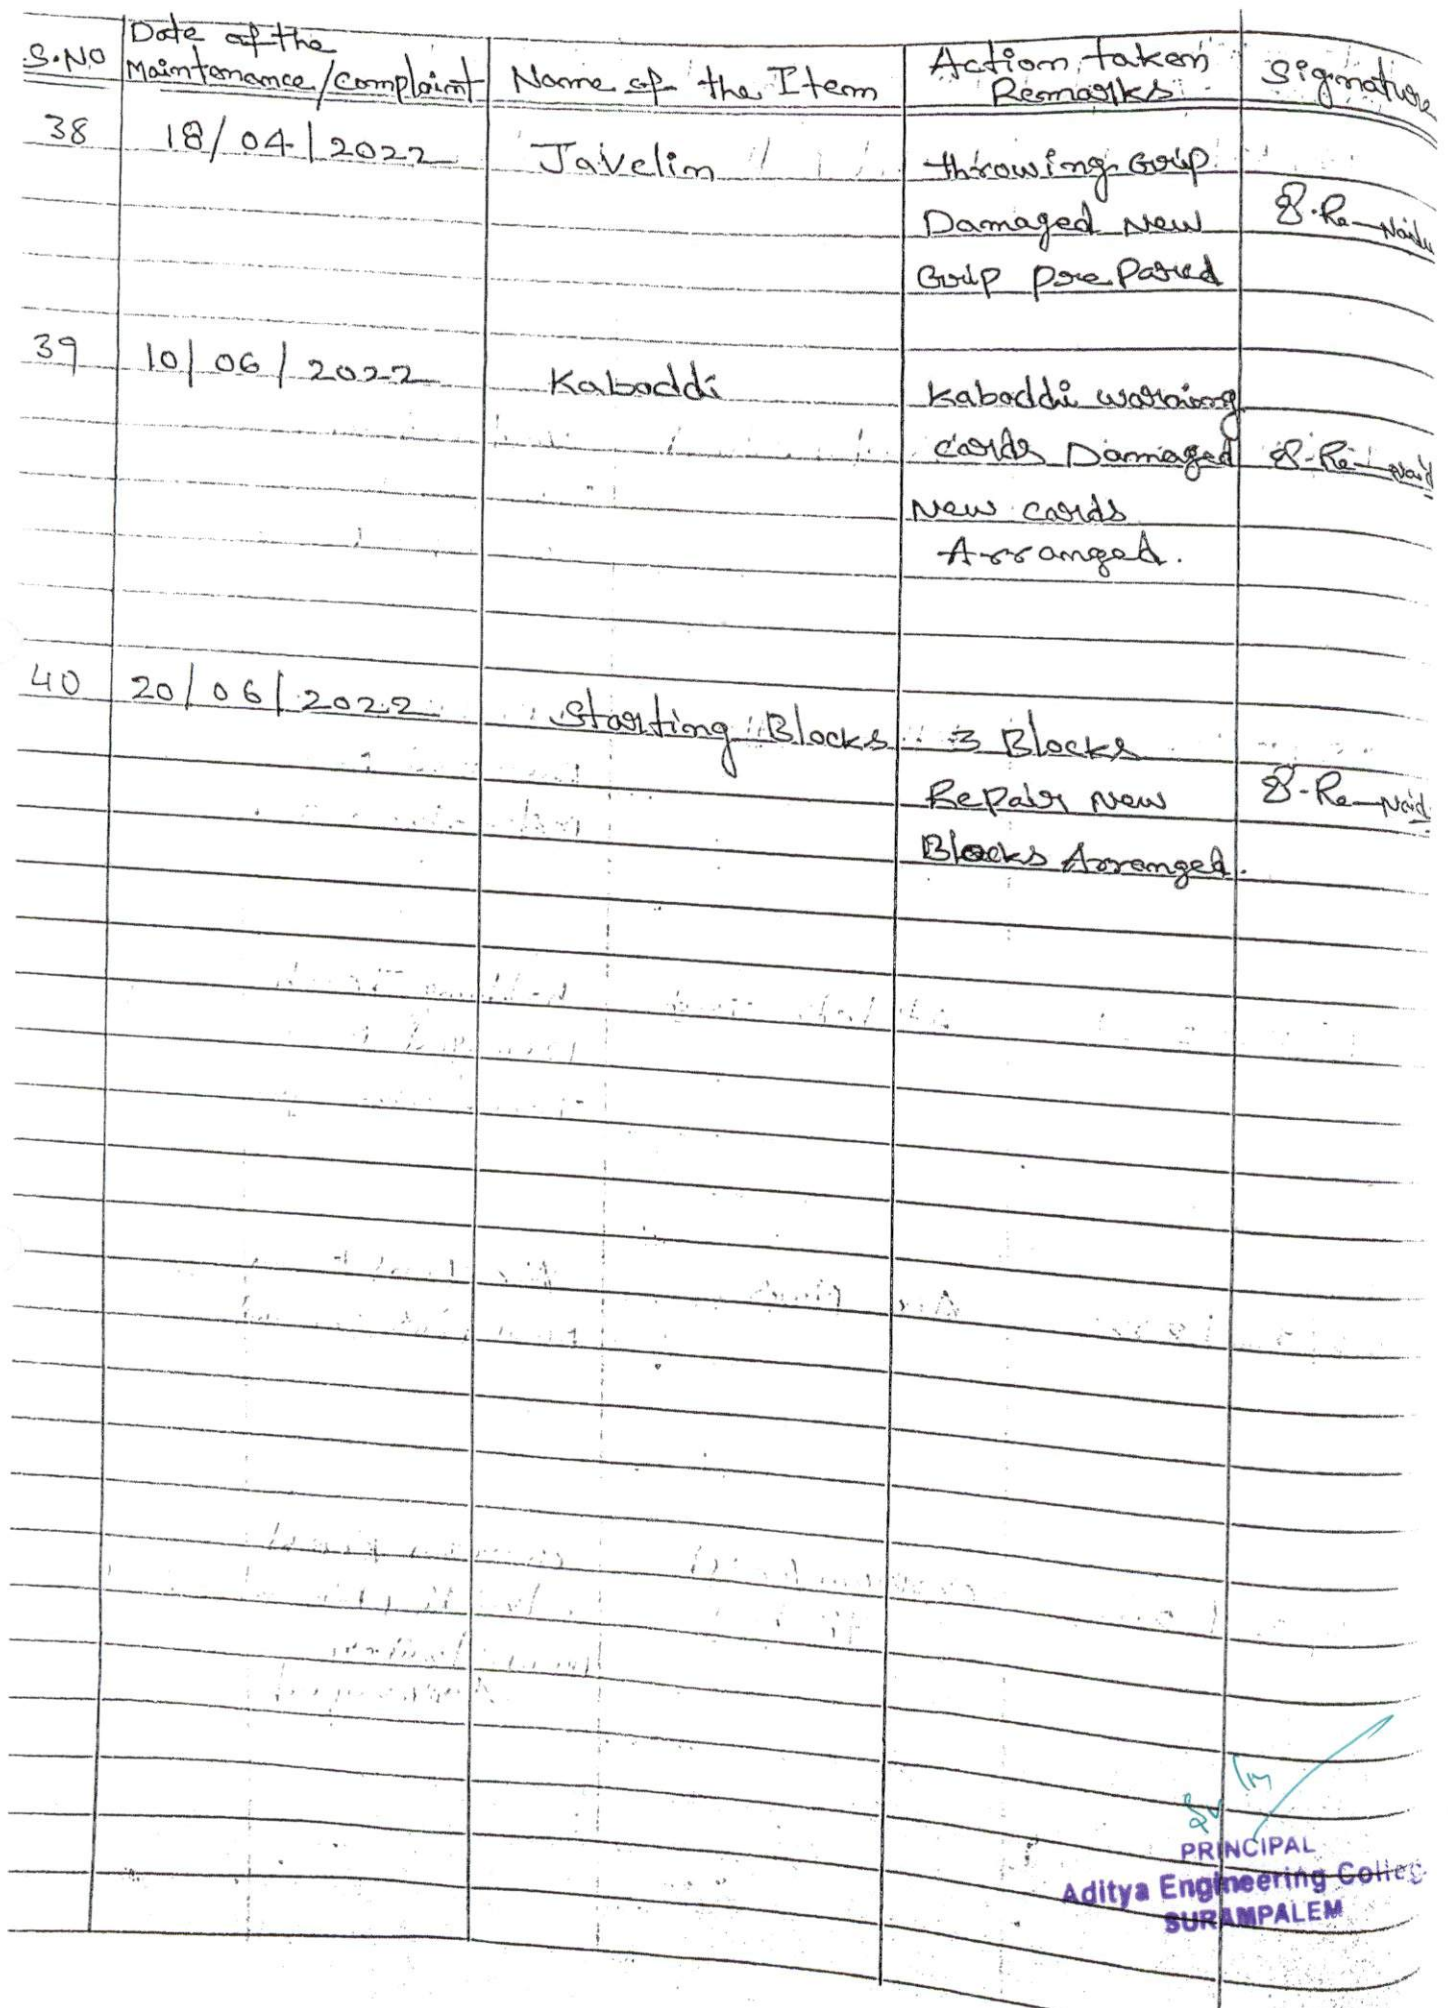 S.NO Date of the Maintenance/complaint Name of the Item Action taken Remarks Signature
38 18/04/2022 Javelin throwing Grip
Damaged New
Grip prepared
39 10/06/2022 Kabaddi Kabaddi warning
cards Damaged
New cards
Arranged.
40 20/06/2022 Starting Blocks 3 Blocks
Repair New
Blocks Arranged.
PRINCIPAL
Aditya Engineering Colleg
SURAMPALEM